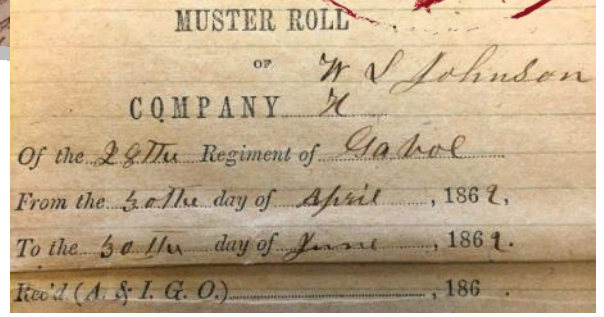 MUSTER ROLL
OF
W S Johnson
COMPANY H
Of the 28Thu Regiment of Ga vol
From the 30Thu day of April , 1862,
To the 30 Thu day of June , 1862.
Rec'd (A. & I. G. O.) , 186 .